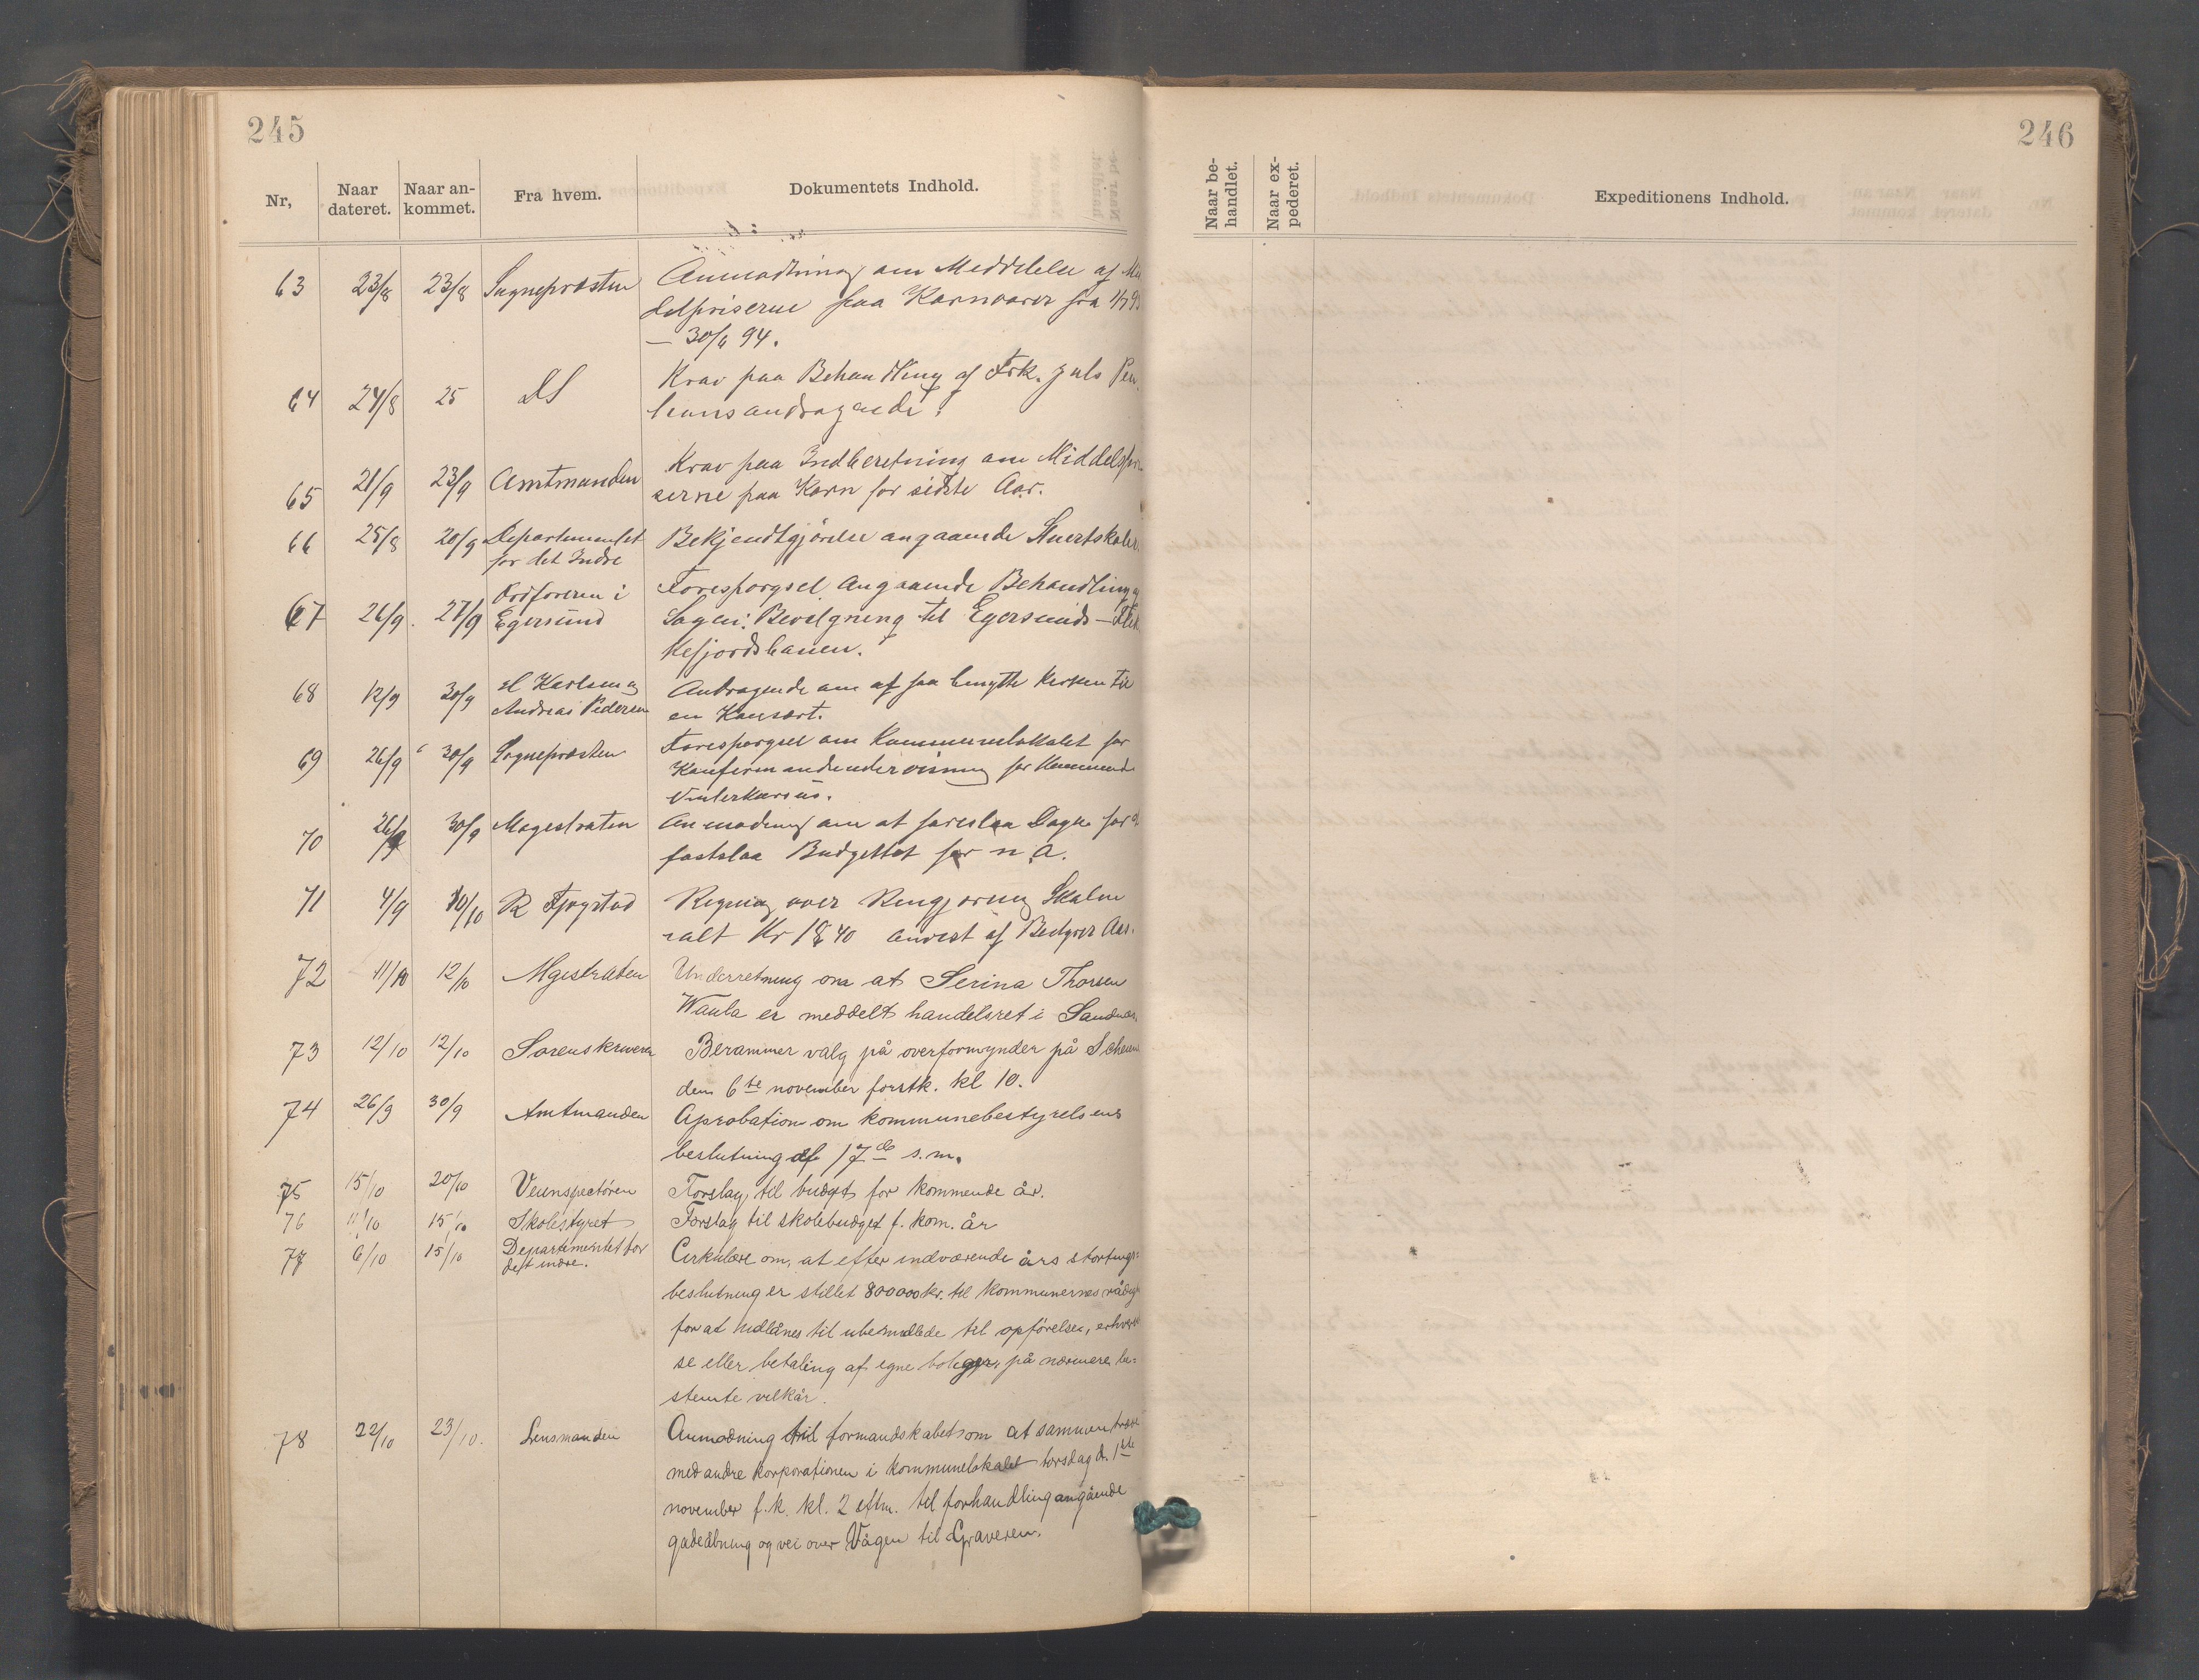 245
Nr,
Naar dateret.
Naar ankommet.
Fra hvem.
Dokumentets Indhold.
63 23/8 23/8 Sognepræsten Anmodning om Meddelelse af Mid
delpriserne paa Kornvarer fra 1/7 93
— 30/6 94.
64 24/8 25 DS Krav paa Behandling af Frk. Juls Pen
sionsandragende.
65 21/9 23/9 Amtmanden Krav paa Indberetning om Middelspri
serne paa Korn for sidste Aar.
66 25/8 20/9 Departementet
for det Indre Bekjendtgjörelse angaaende
67 26/9. 27/9 Ordføreren i
Egersund Forespørgsel Angaaende Behandling af
Sagen: Bevilgning til Egersunds—Flek
kefjordsbanen.
68 12/9 30/9 Karlsen og
Andreas Pedersen Andragende om at faa benytte Kirken til
en Konsert.
69 26/9 30/9 Sognepræsten Forespørgsel om Kommunelokalet for
Konfirmandundervisning for kommende
Vinterkursus.
70 26/9 30/9 Magestraten Anmodning om at foreslaa Dagen for at
fastslaa Budgettet for n. A.
71 4/9 10/10 R Fjogstad Regning over Rengjøring Skolen
ialt Kr 18,40 anvist af Aar.
72 11/10 12/10 Mgistraten Underretning om at Serina Thorsen
Waula er meddelt handelsret i Sandnes
73 12/10 12/10 Sorenskriveren Berammer valg på overformynder på Scheie
den 6te november førstk. kl 10.
74 26/9 30/9 Amtmanden Aprobation om kommunebestyrelsens
beslutning af 17de s.m.
75 15/10 20/10 Veiinspectören Forslag til budget for kommende år.
76 11/10 15/10 Skolestyret Forslag til skolebudget f. kom. år
77 6/10 15/10 Departementet for
det indre. Cirkulære om, at efter indværende års stortings-
beslutning er stillet 800000 kr. til kommunernes rådig
for at udlånes til ubemidlede til opførelse, erhvervel
se eller betaling af egne boliger, på nærmere be-
stemte vilkår.
78 22/10 23/10. Lensmanden Anmodning til formandskabet om at sammentræde
med andre korporationen i kommunelokalet torsdag d. 1ste
november f.k. kl. 2 eftm. til forhandling angående
gadeåbning og vei over Vågen til Graveren.
246
Naar behandlet.
Naar expederet.
Expeditionens Indhold.